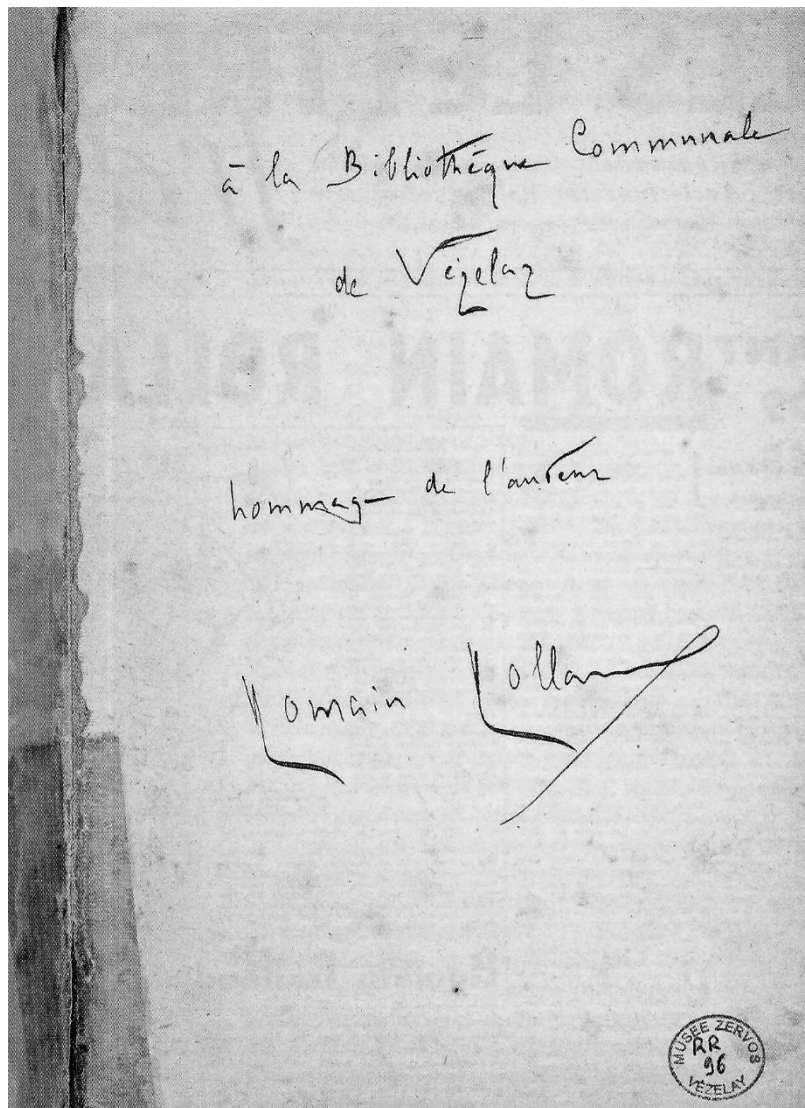 à la Bibliothèque Communale
de Vézelay
hommage de l'auteur
Romain Rolland
MUSEE ZERVOS
RR
96
VÉZELAY